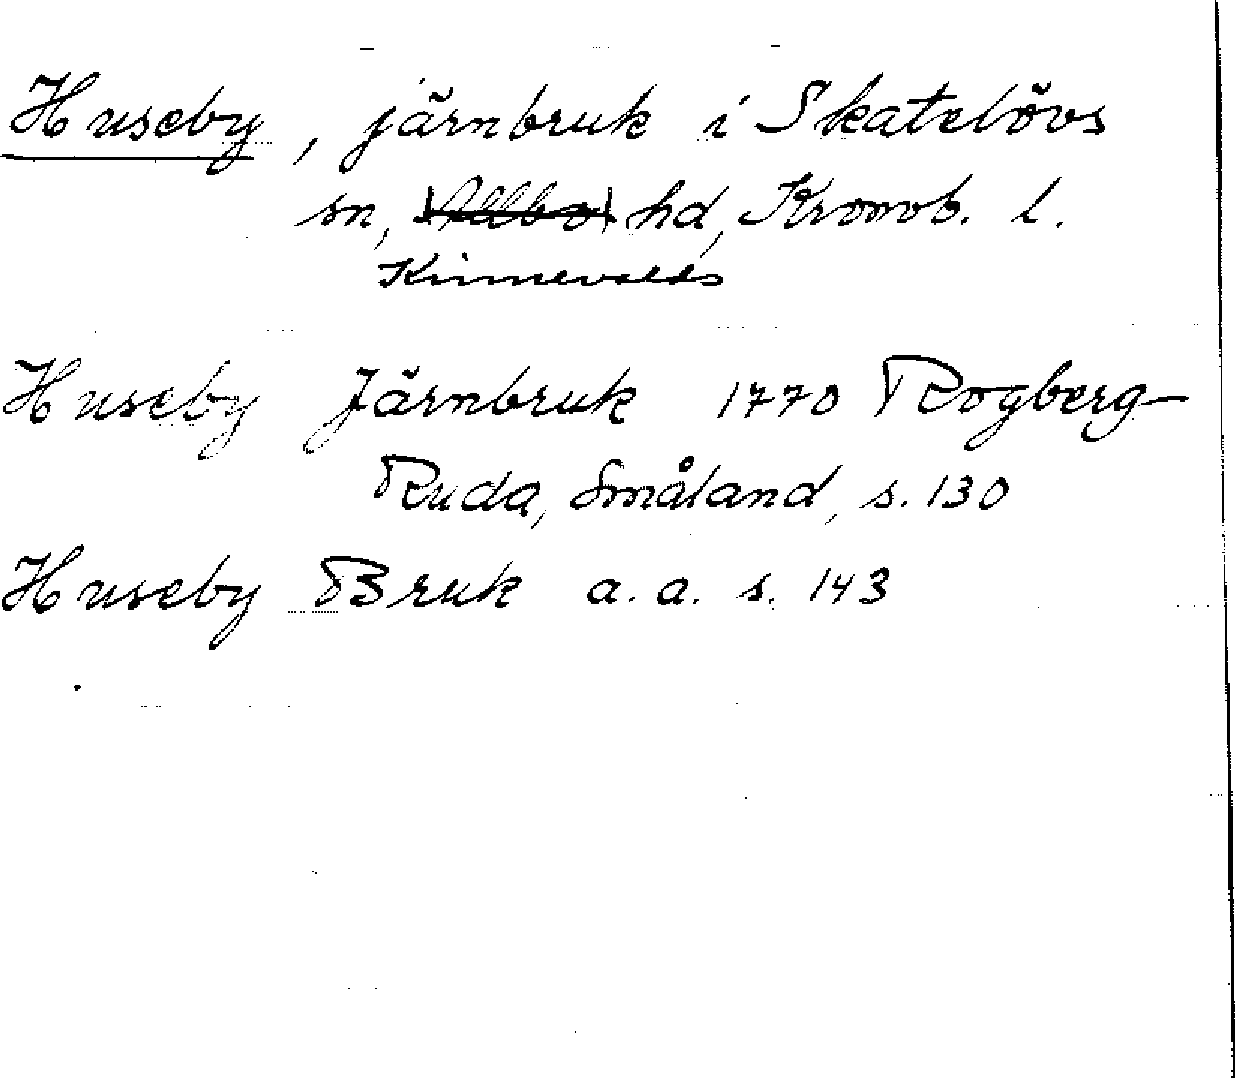 Huseby, järnbruk i Skatelövs
sn, Allbo hd, Kronob. l.
Kinnevalds
Huseby Järnbruk 1770 Rogberg-
Ruda, Småland, s. 130
Huseby Bruk a. a. s. 143